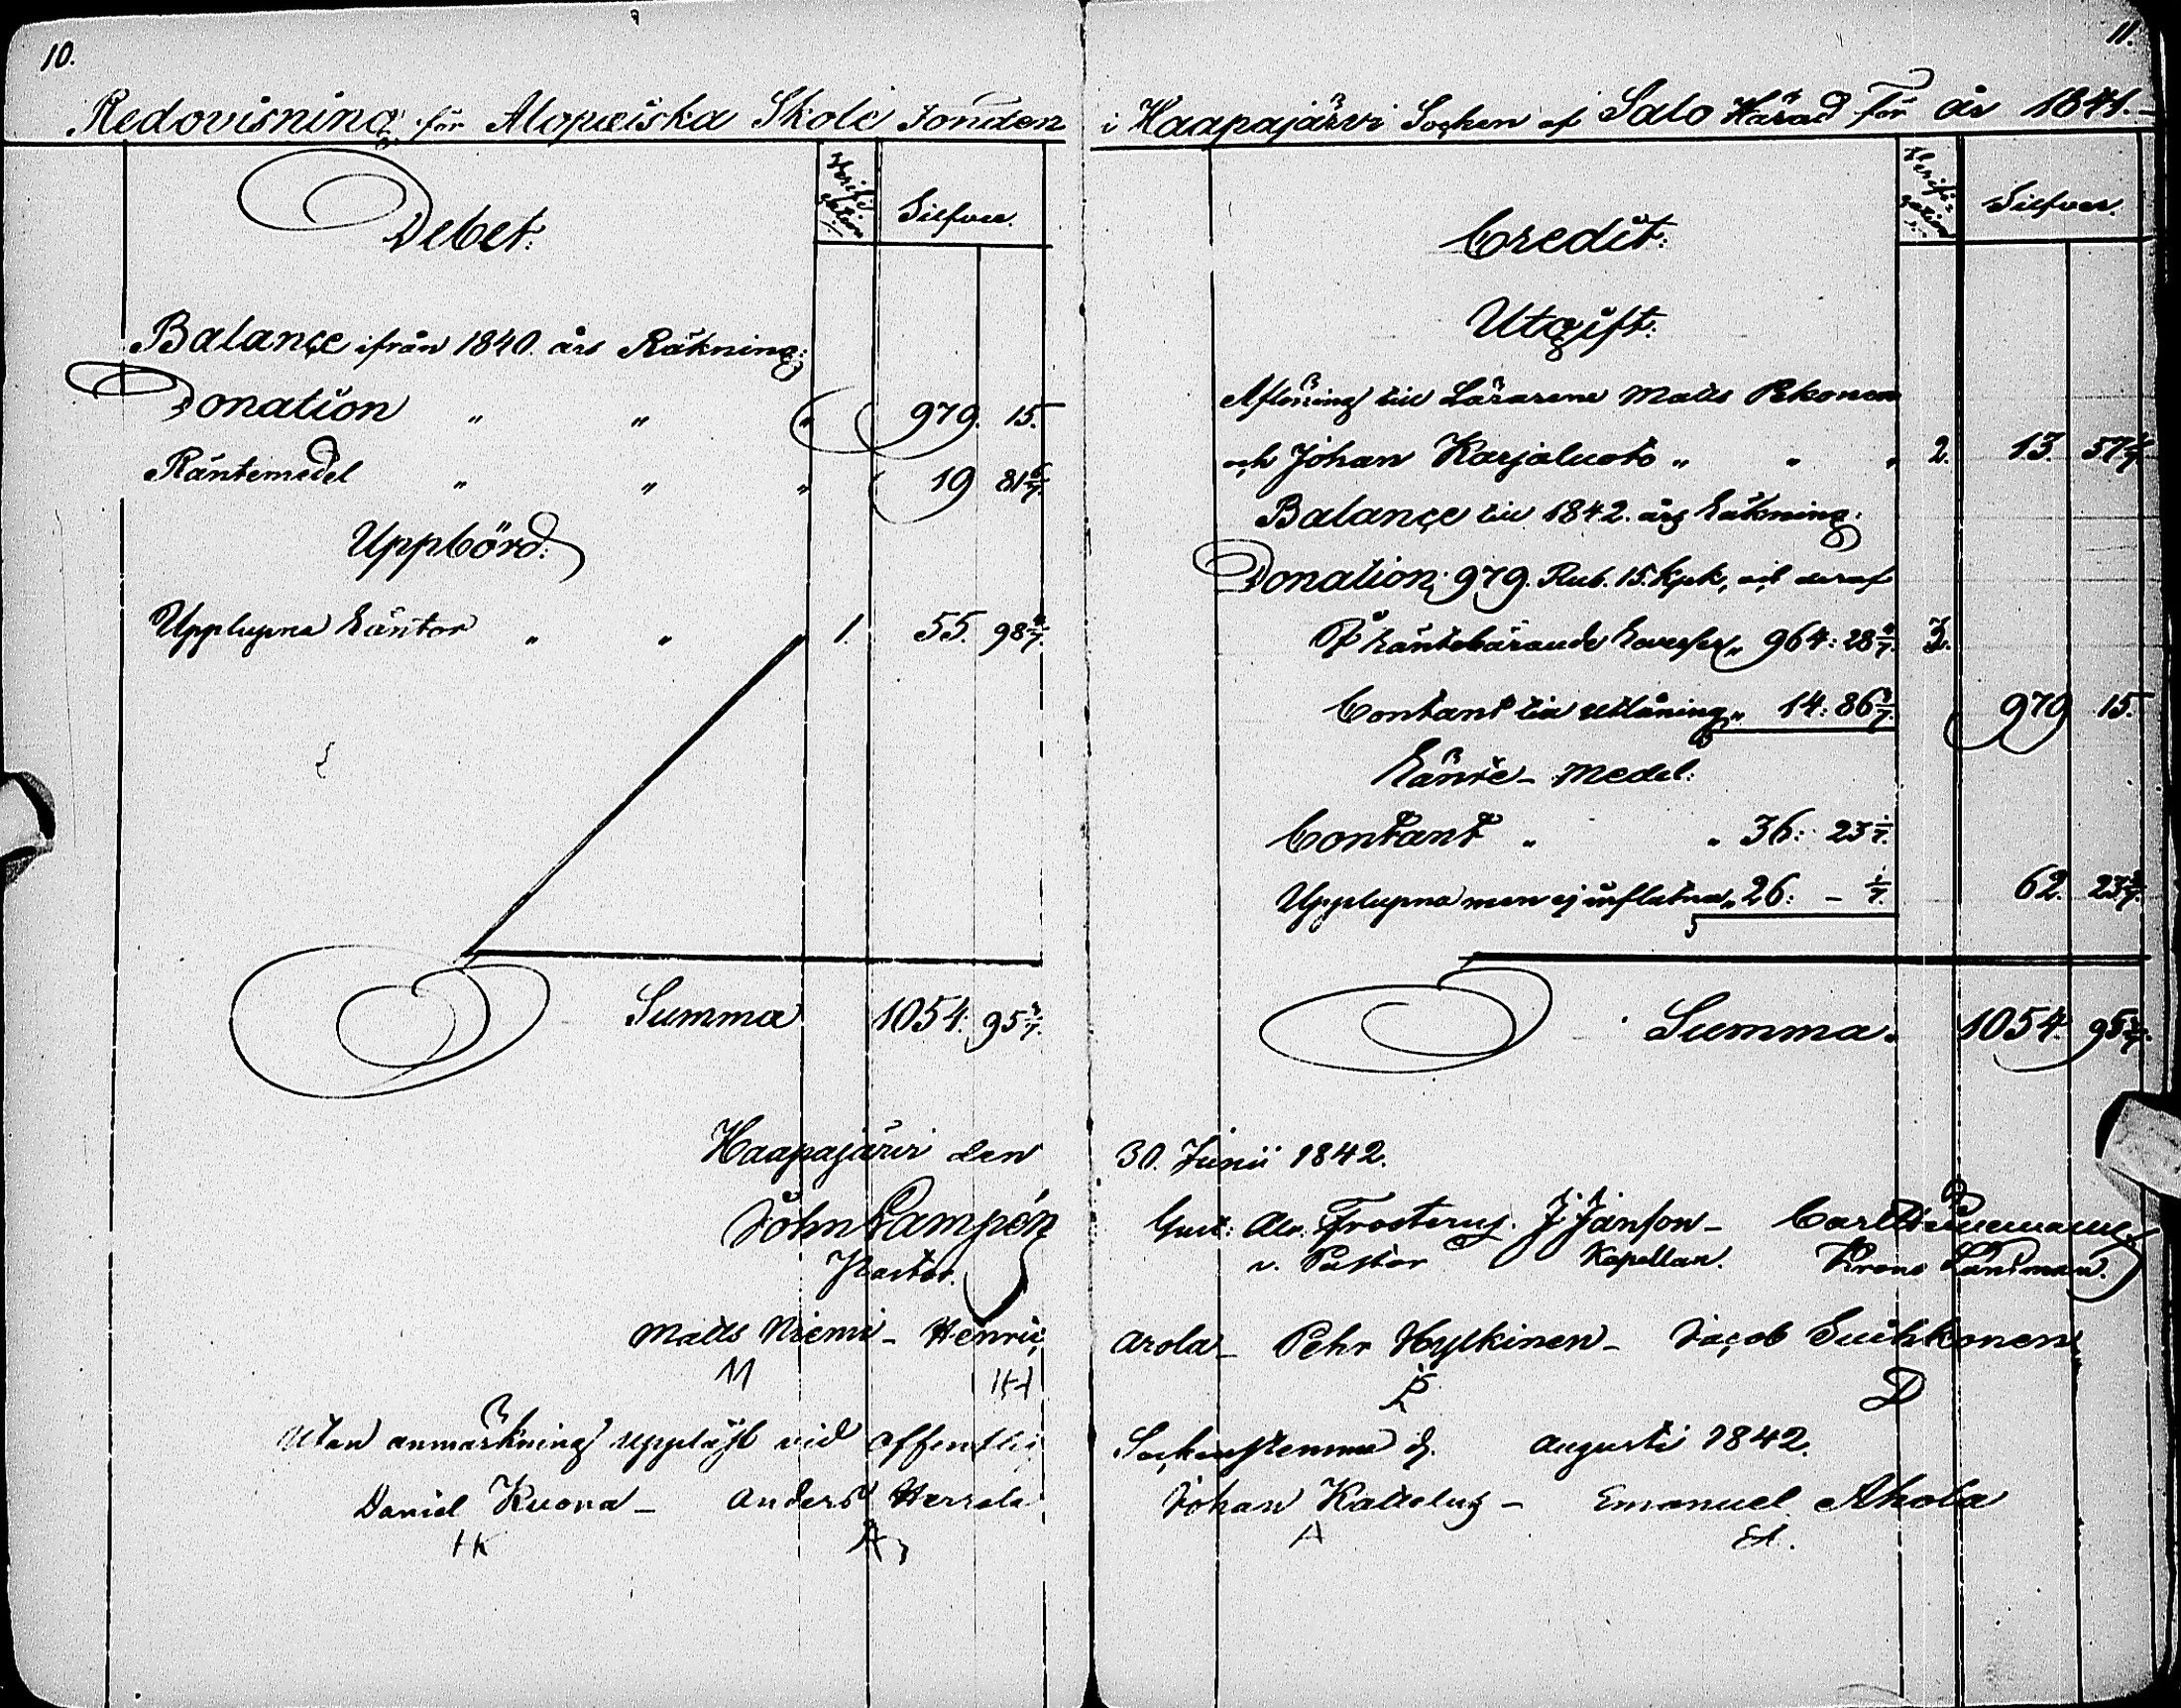 10.
Redovisning för Alopæiska Skole Fonden
Verification
Silfver.
Debet:
Balançe ifrån 1840. års Räkning:
Donation " " " 979. 15.
Räntemedel " " " 19 81 6/7.
Uppbörd:
Upplupna Räntor " " 1. 55. 98 4/7.
Summa 1054. 95 3/7.
Haapajärvi den
Joh Lampén
Pastor.
Matts Niemi - Henric
M HH
Utan anmärkning uppläst vid offentlig
Daniel Kuona - Anders Herrala
HK A
11.
i Haapajärvi Socken af Salo Härad För år 1841.
Verification
Silfver.
Credit:
Utgift:
Aflöning till Lärarene Matts Pekonen
och Johan Karjaluoto " " " 2. 13. 57 1/7
Balançe till 1842. års Räkning:
Donation; 979. Rub. 15. kpk, och deraf
På räntebärande Reverser " 964: 28 4/7. 3.
Contant till utlåning " 14: 86 3/7. 979 15.
Ränte-Medel:
Contant " " 36: 23 1/7.
Upplupna men ej influtna " 26: - 1/7. 62. 23 2/7.
Summa. 1054. 95 3/7.
30. Junii 1842.
Gust: Alx: Frosterus. J Janson - Carl
v. Pastor Kapellan. Krono Länsman.
Arola - Pehr Hylkinen - Jacob Suihkonen
P D
Sockenstemma d. Augusti 1842.
Johan Kattelus - Emanuel Ahola
A EA.